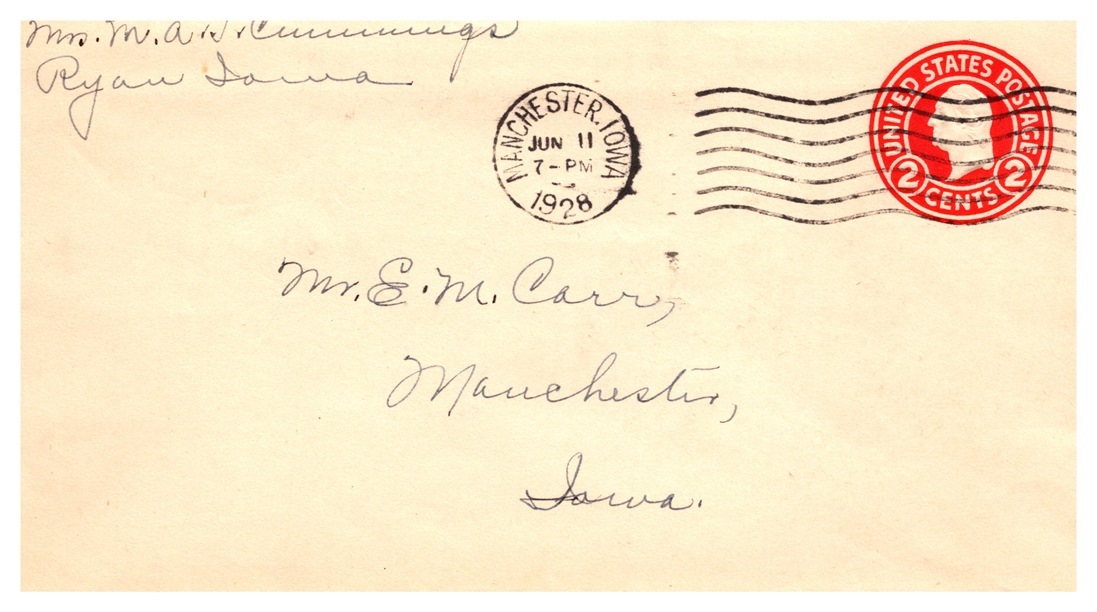 Mrs. M. A. H. Cummings
Ryan Iowa
MANCHESTER. IOWA
JUN 11
7-PM
1928
UNITED STATES POSTAGE
2 CENTS 2
Mr. E. M. Carr,
Manchester,
Iowa.